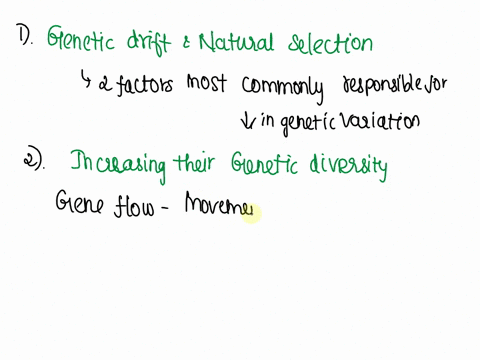 1). Genetic drift & Natural Selection
↳ 2 factors most commonly responsible for
↓ in genetic variation
2). Increasing their Genetic diversity
Gene flow - Moveme